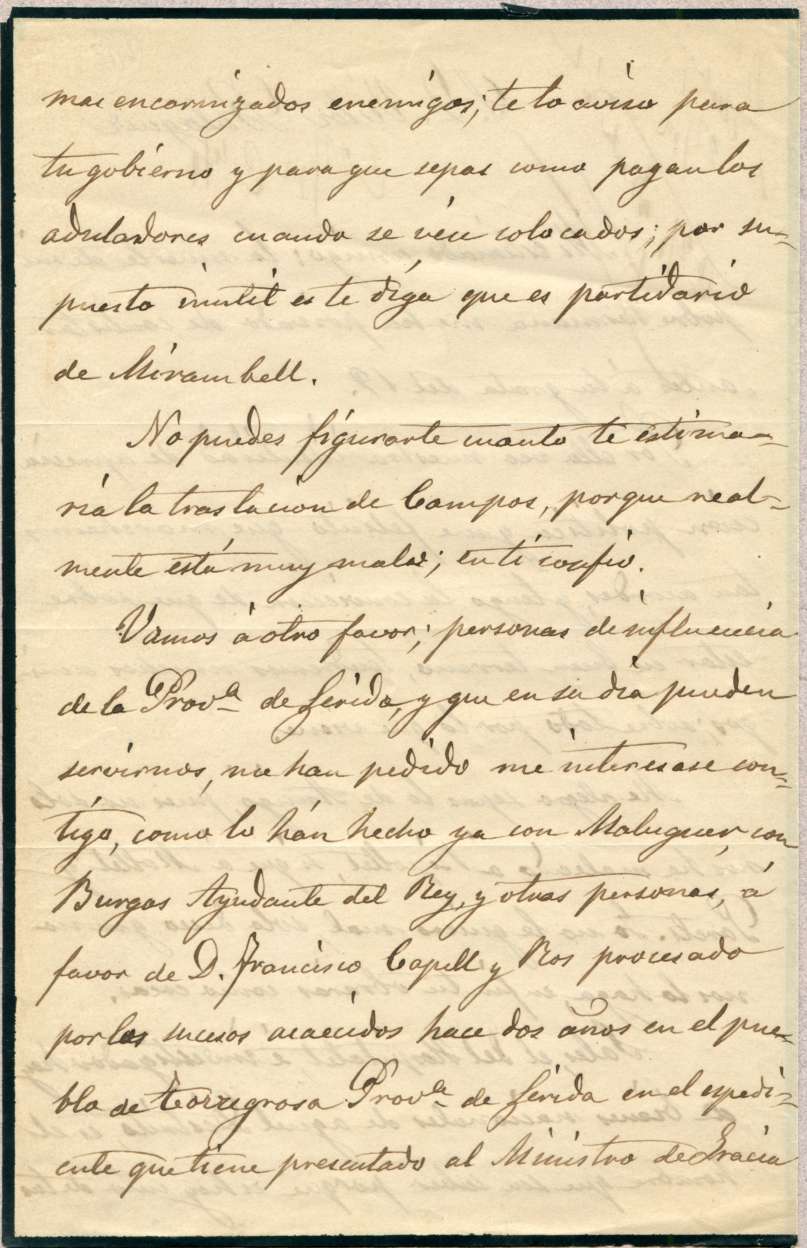 mas encarnizados enemigos; te lo aviso para
tu gobierno y para que sepas como pagan los
aduladores cuando se vén colocados; por su-
puesto inutil es te diga que es partidario
de Mirambell.
No puedes figurarte cuanto te estima-
ría la traslacion de Campos, porque real-
mente está muy malo; en ti confio.
Vamos á otro favor; personas de influencia
de la Prov.ª de Lérida, y que en su dia pueden
servirnos, me han pedido me interesase con-
tigo, como lo hán hecho ya con Maluquer, con
Burgos Ayudante del Rey, y otras personas, á
favor de D. Francisco Capell y Ros procesado
por los sucesos acaecidos hace dos años en el pue-
blo de Torregrosa Prov.ª de Lérida en el espedi-
ente que tiene presentado al Ministro de Gracia